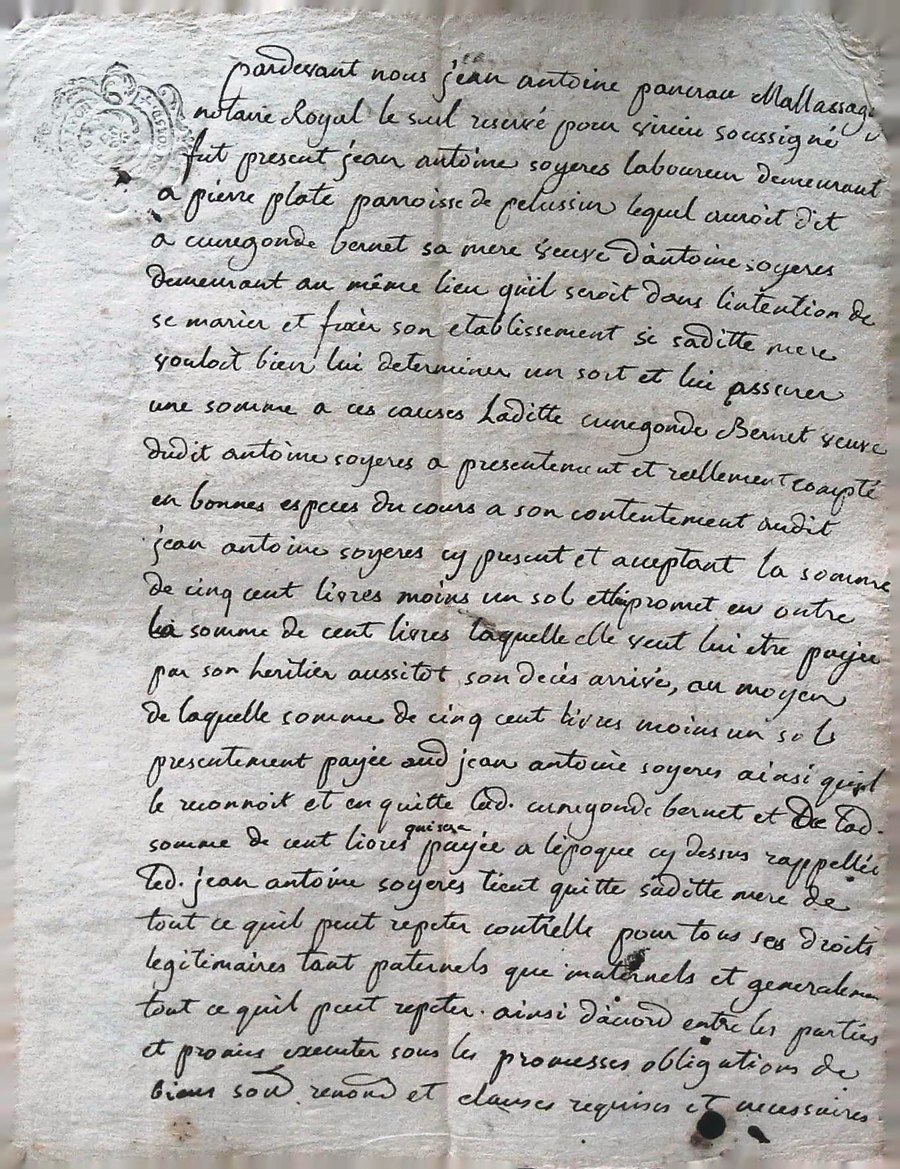 pardevant nous jean antoine pancrau Mallassagny
notaire Royal le seul reservé pour virieu soussigné
fut present jean antoine soyeres laboureur demeurant
a pierre plate parroisse de pelussin lequel auroit dit
a cunegonde bernet sa mere veuve d'antoine soyeres
demeurant au même lieu qu'il seroit dans l'intention de
se marier et fixer son etablissement si saditte mere
vouloit bien lui determiner un sort et lui assurer
une somme a ces causes Laditte cunegonde Bernet veuve
dudit antoine soyeres a presentement et reellement compté
en bonnes especes du cours a son contentement audit
jean antoine soyeres cy present et acceptant la somme
de cinq cent livres moins un sol et promet en outre
la somme de cent livres laquelle elle veut lui etre payée
par son heritier aussitot son decès arrivé, au moyen
de laquelle somme de cinq cent livres moins un sols
presentement payée aud jean antoine soyeres ainsi quil
le reconnoit et en quitte lad. cunegonde bernet et De lad.
somme de cent livres qui sera payée a l'époque cy dessus rappellée
led. jean antoine soyeres tient quitte saditte mere de
tout ce quil peut repeter contrelle pour tous ses droits
legitimaires tant paternels que maternels et generalemen
tout ce quil peut repeter. ainsi d'acord entre les parties
et promis executer sous les promesses obligations de
biens soud. renond et clauses requises et necessaires